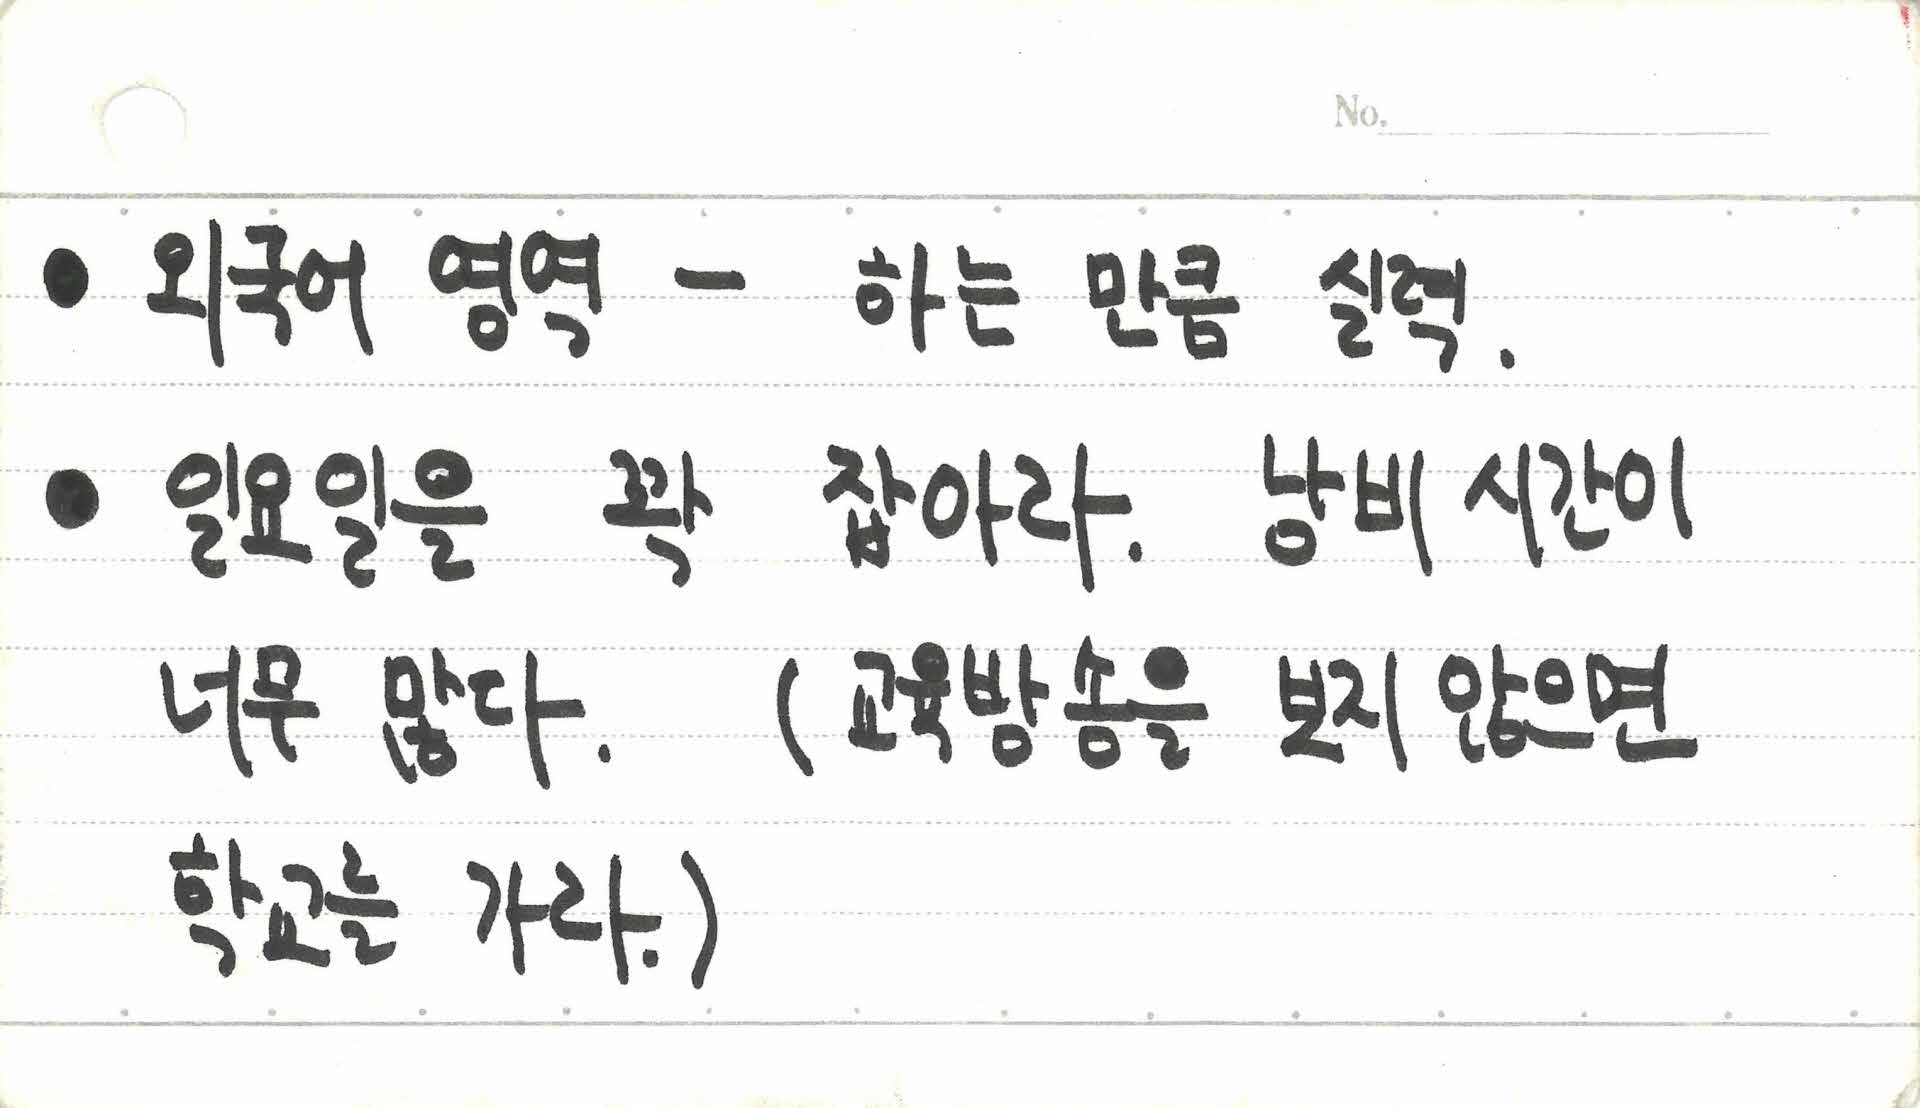 No.
● 외국어 영역 - 하는 만큼 실력.
● 일요일을 꽉 잡아라. 낭비 시간이
너무 많다. (교육방송을 보지 않으면
학교를 가라.)